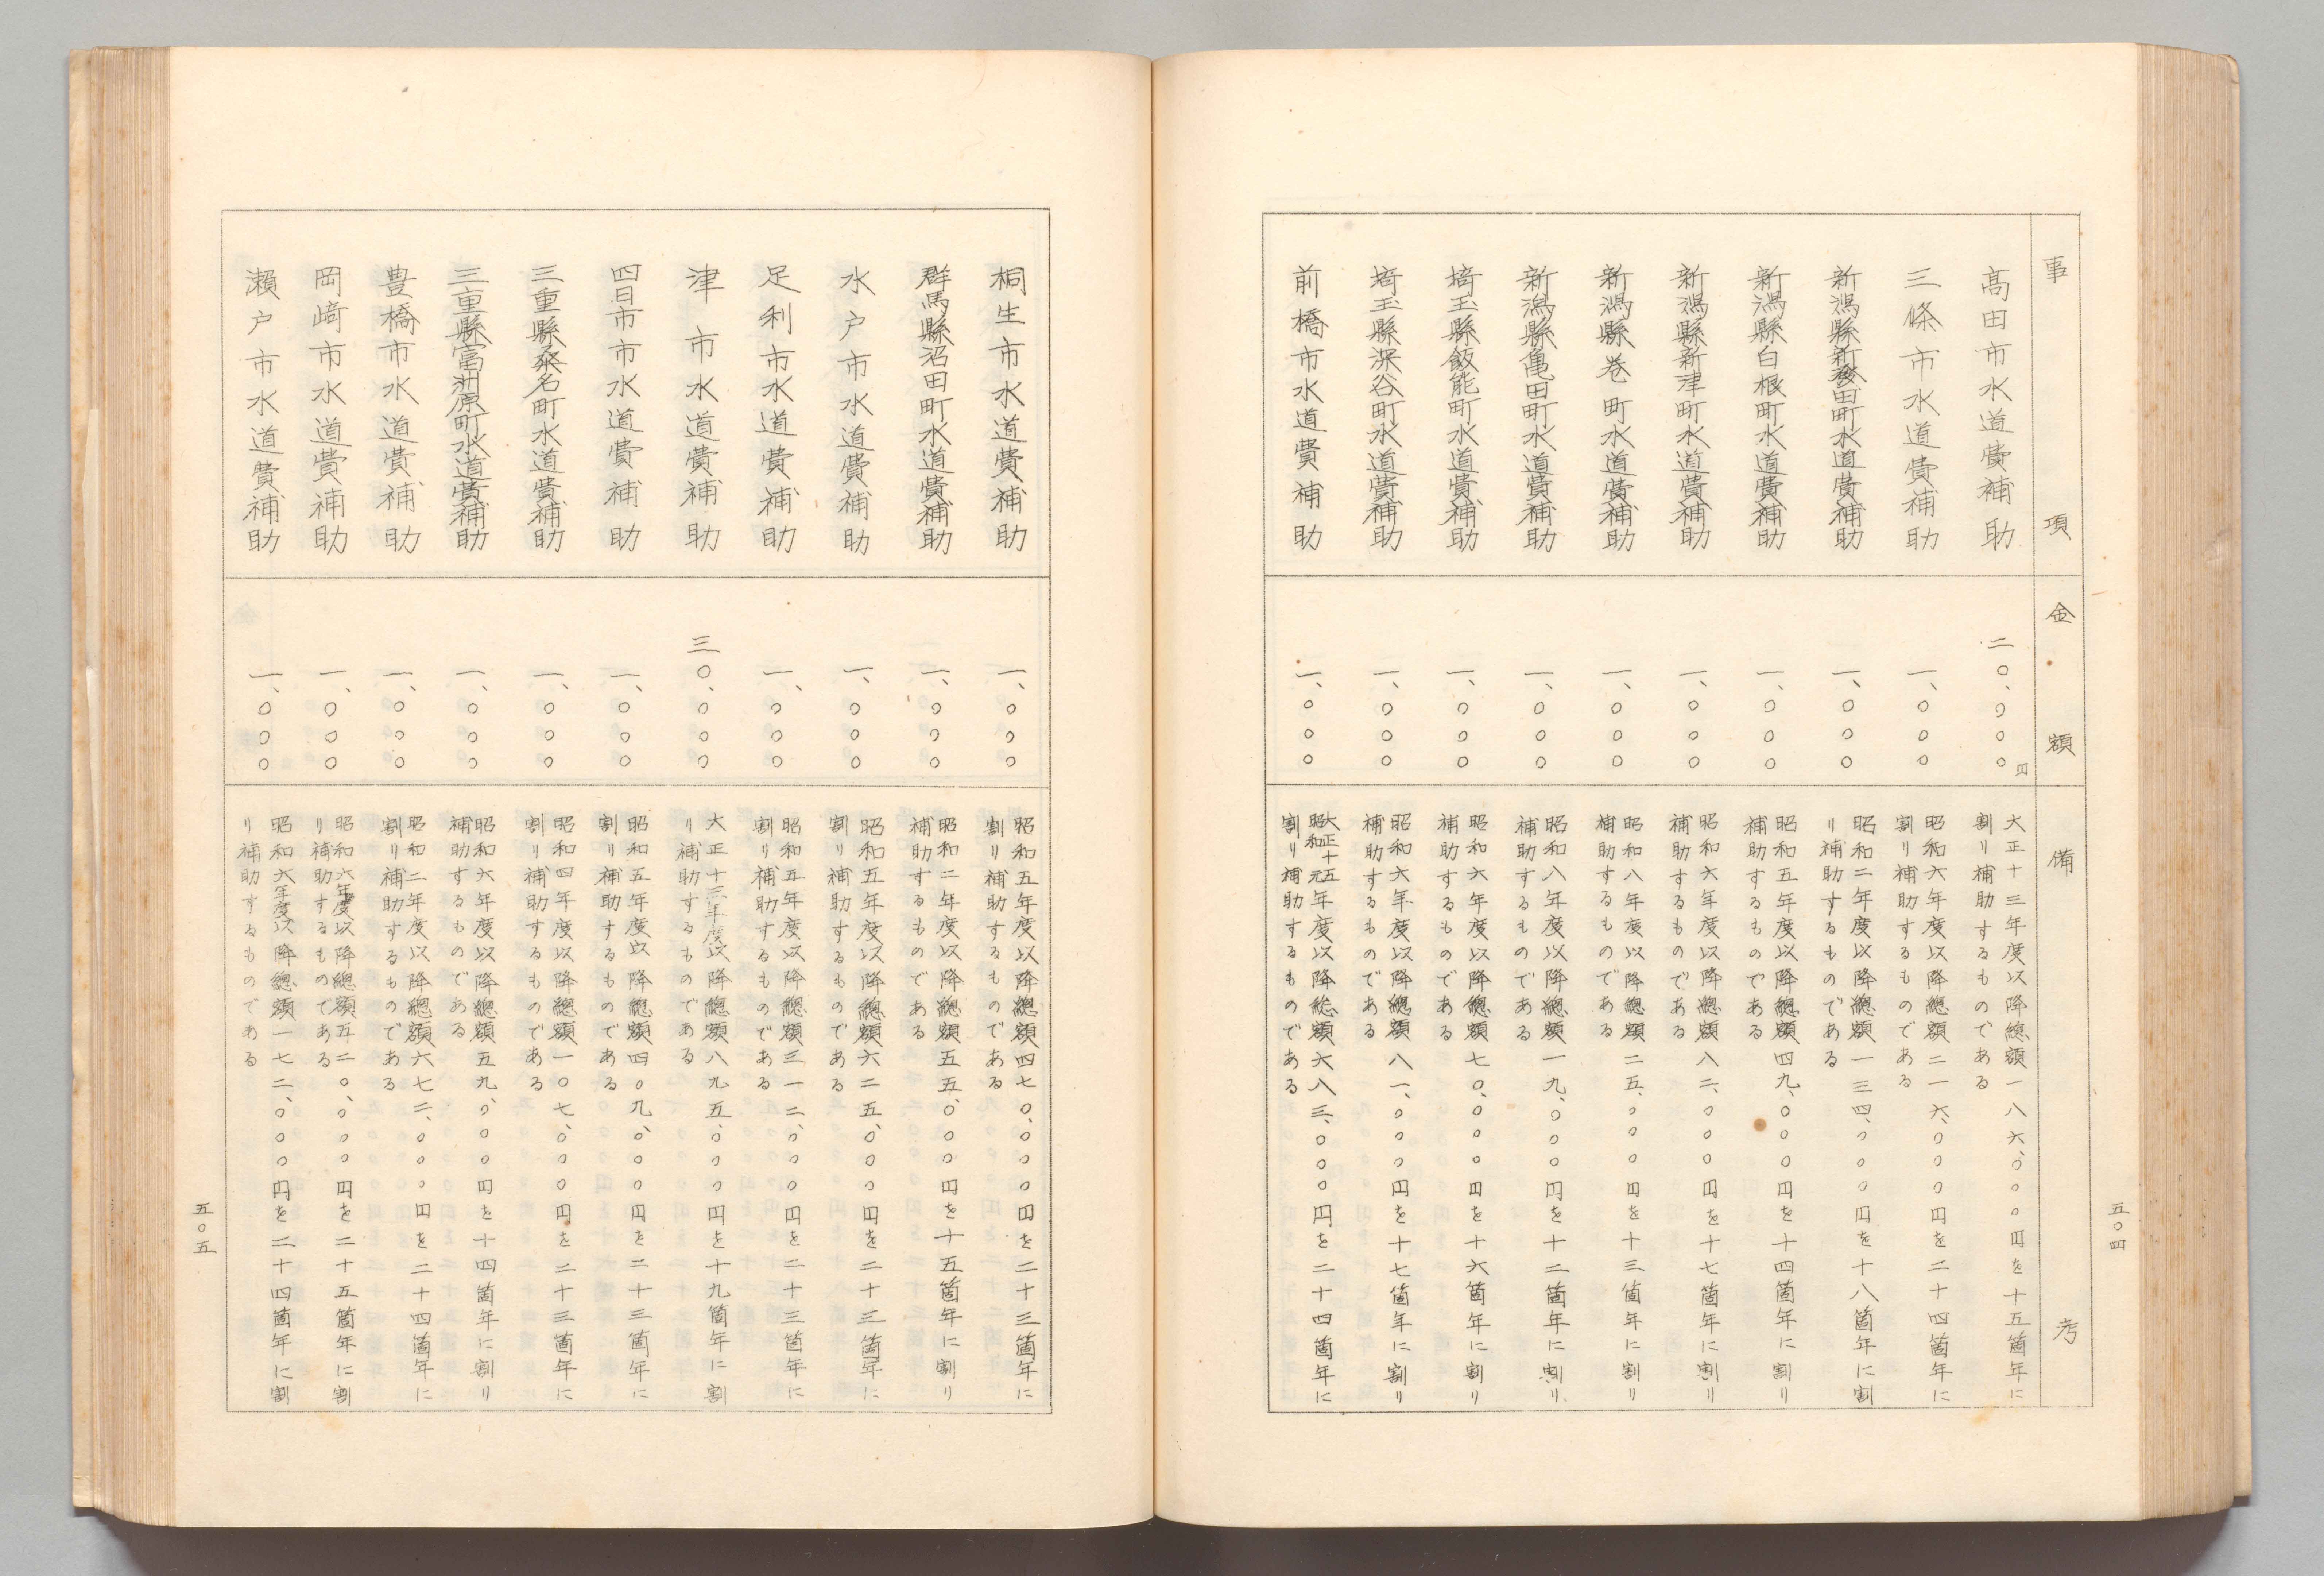 事項
金額
備考
高田市水道費補助
二〇、〇〇〇円
大正十三年度以降總額一八六、〇〇〇円を十五箇年に
割り補助するものである
三條市水道費補助
一、〇〇〇
昭和六年度以降總額二一六、〇〇〇円を二十四箇年に
割り補助するものである
新潟縣新發田町水道費補助
一、〇〇〇
昭和二年度以降總額一三四、〇〇〇円を十八箇年に割
り補助するものである
新潟縣白根町水道費補助
一、〇〇〇
昭和五年度以降總額四九、〇〇〇円を十四箇年に割り
補助するものである
新潟縣新津町水道費補助
一、〇〇〇
昭和六年度以降總額八二、〇〇〇円を十七箇年に割り
補助するものである
新潟縣卷町水道費補助
一、〇〇〇
昭和八年度以降總額二五、〇〇〇円を十三箇年に割り
補助するものである
新潟縣亀田町水道費補助
一、〇〇〇
昭和八年度以降總額一九、〇〇〇円を十二箇年に割り
補助するものである
埼玉縣飯能町水道費補助
一、〇〇〇
昭和六年度以降總額七〇、〇〇〇円を十六箇年に割り
補助するものである
埼玉縣深谷町水道費補助
一、〇〇〇
昭和六年度以降總額八一、〇〇〇円を十七箇年に割り
補助するものである
前橋市水道費補助
一、〇〇〇
大正十五
昭和元年度以降総額六八三、〇〇〇円を二十四箇年に
割り補助するものである
五〇四
桐生市水道費補助
一、〇〇〇
昭和五年度以降總額四七〇、〇〇〇円を二十三箇年に
割り補助するものである
群馬縣沼田町水道費補助
一、〇〇〇
昭和二年度以降總額五五、〇〇〇円を十五箇年に割り
補助するものである
水戸市水道費補助
一、〇〇〇
昭和五年度以降總額六二五、〇〇〇円を二十三箇年に
割り補助するものである
足利市水道費補助
一、〇〇〇
昭和五年度以降總額三一二、〇〇〇円を二十三箇年に
割り補助するものである
津市水道費補助
三〇、〇〇〇
大正十三年度以降總額八九五、〇〇〇円を十九箇年に割
り補助するものである
四日市市水道費補助
一、〇〇〇
昭和五年度以降總額四〇九、〇〇〇円を二十三箇年に
割り補助するものである
三重縣桑名町水道費補助
一、〇〇〇
昭和四年度以降總額一〇七、〇〇〇円を二十三箇年に
割り補助するものである
三重縣富洲原町水道費補助
一、〇〇〇
昭和六年度以降總額五九、〇〇〇円を十四箇年に割り
補助するものである
豊橋市水道費補助
一、〇〇〇
昭和二年度以降總額六七二、〇〇〇円を二十四箇年に
割り補助するものである
岡﨑市水道費補助
一、〇〇〇
昭和六年度以降總額五二〇、〇〇〇円を二十五箇年に割
り補助するものである
瀬戸市水道費補助
一、〇〇〇
昭和六年度以降總額一七二、〇〇〇円を二十四箇年に割
り補助するものである
五〇五